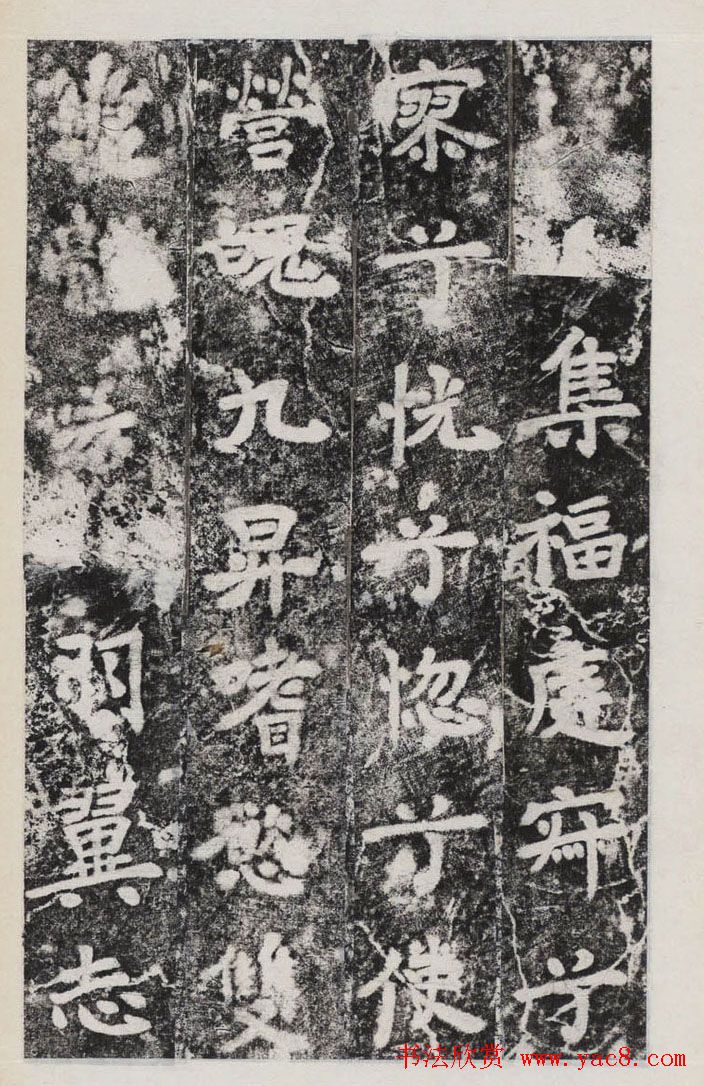 集福處寂兮
寥兮恍兮惚兮使
營魄九昇嗜慾雙
羽翼志
书法欣赏 www.yac8.com